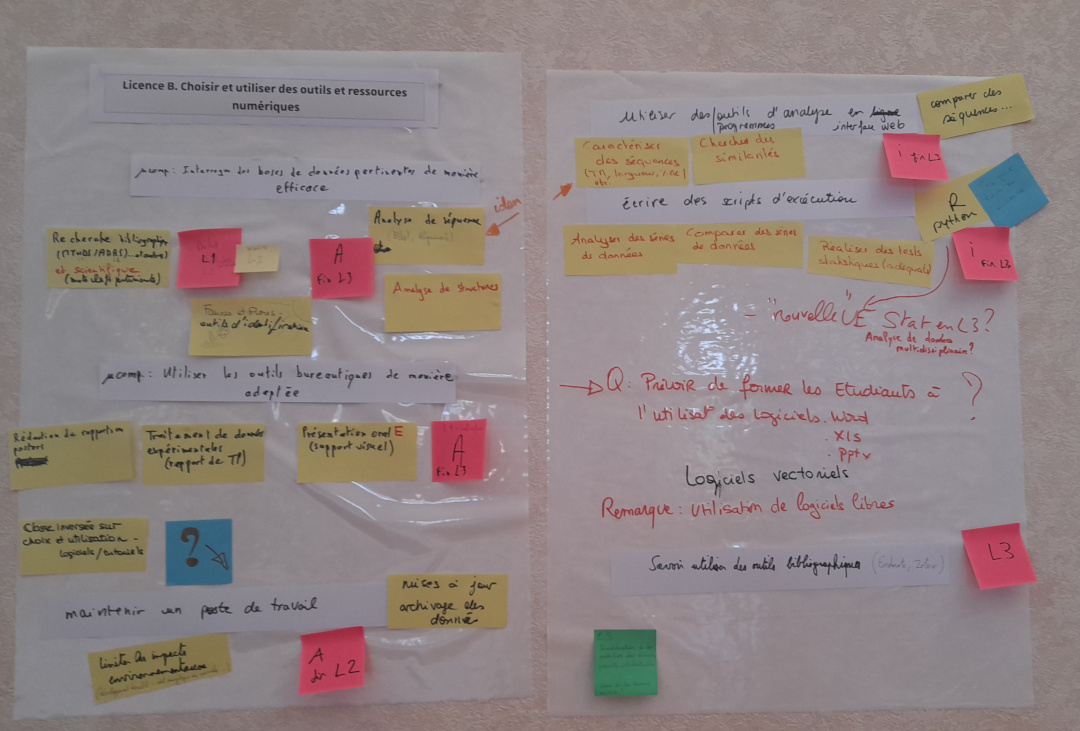 Licence B. Choisir et utiliser des outils et ressources
numériques
µcomp: Interroger les bases de données pertinentes de manière
efficace
Recherche bibliographiq
et scientifique
(mots clefs pertinents)
L1
A
Fin L3
Analyse de séquence
idem
Analyse de structures
Faunes et Flores:
outils d'identification
µcomp: Utiliser les outils bureautiques de manière
adeptée
Rédaction de rapport
posters
Traitement de données
expérimentales
(rapport de TP)
Présentation oralE
(support visuel)
A
Fin L3
Classe inversée sur
choix et utilisation -
logiciels/tutoriels
?
maintenir un poste de travail
mises à jour
archivage des
données
limiter les impacts
environnementaux
A
fin L2
Utiliser des/outils d'analyse en ligne
programmes interface web
comparer des
séquences...
Caractériser
des séquences
Chercher des
similarités
i fin L3
Écrire des scripts d'exécution
R
python
Analyser des séries
de données
Comparer des séries
de données
Réaliser des tests
statistiques (adéquats)
i
Fin L3
- "nouvelle" UE Stat en L3?
Analyse de données
multidisciplinaire?
Q: Prévoir de former les Etudiants à
l'utilisat° des logiciels. Word
. Xls
. pptx
?
Logiciels vectoriels
Remarque: Utilisation de logiciels libres
Savoir utiliser des outils bibliographiques (Endnote, Zotero)
L3